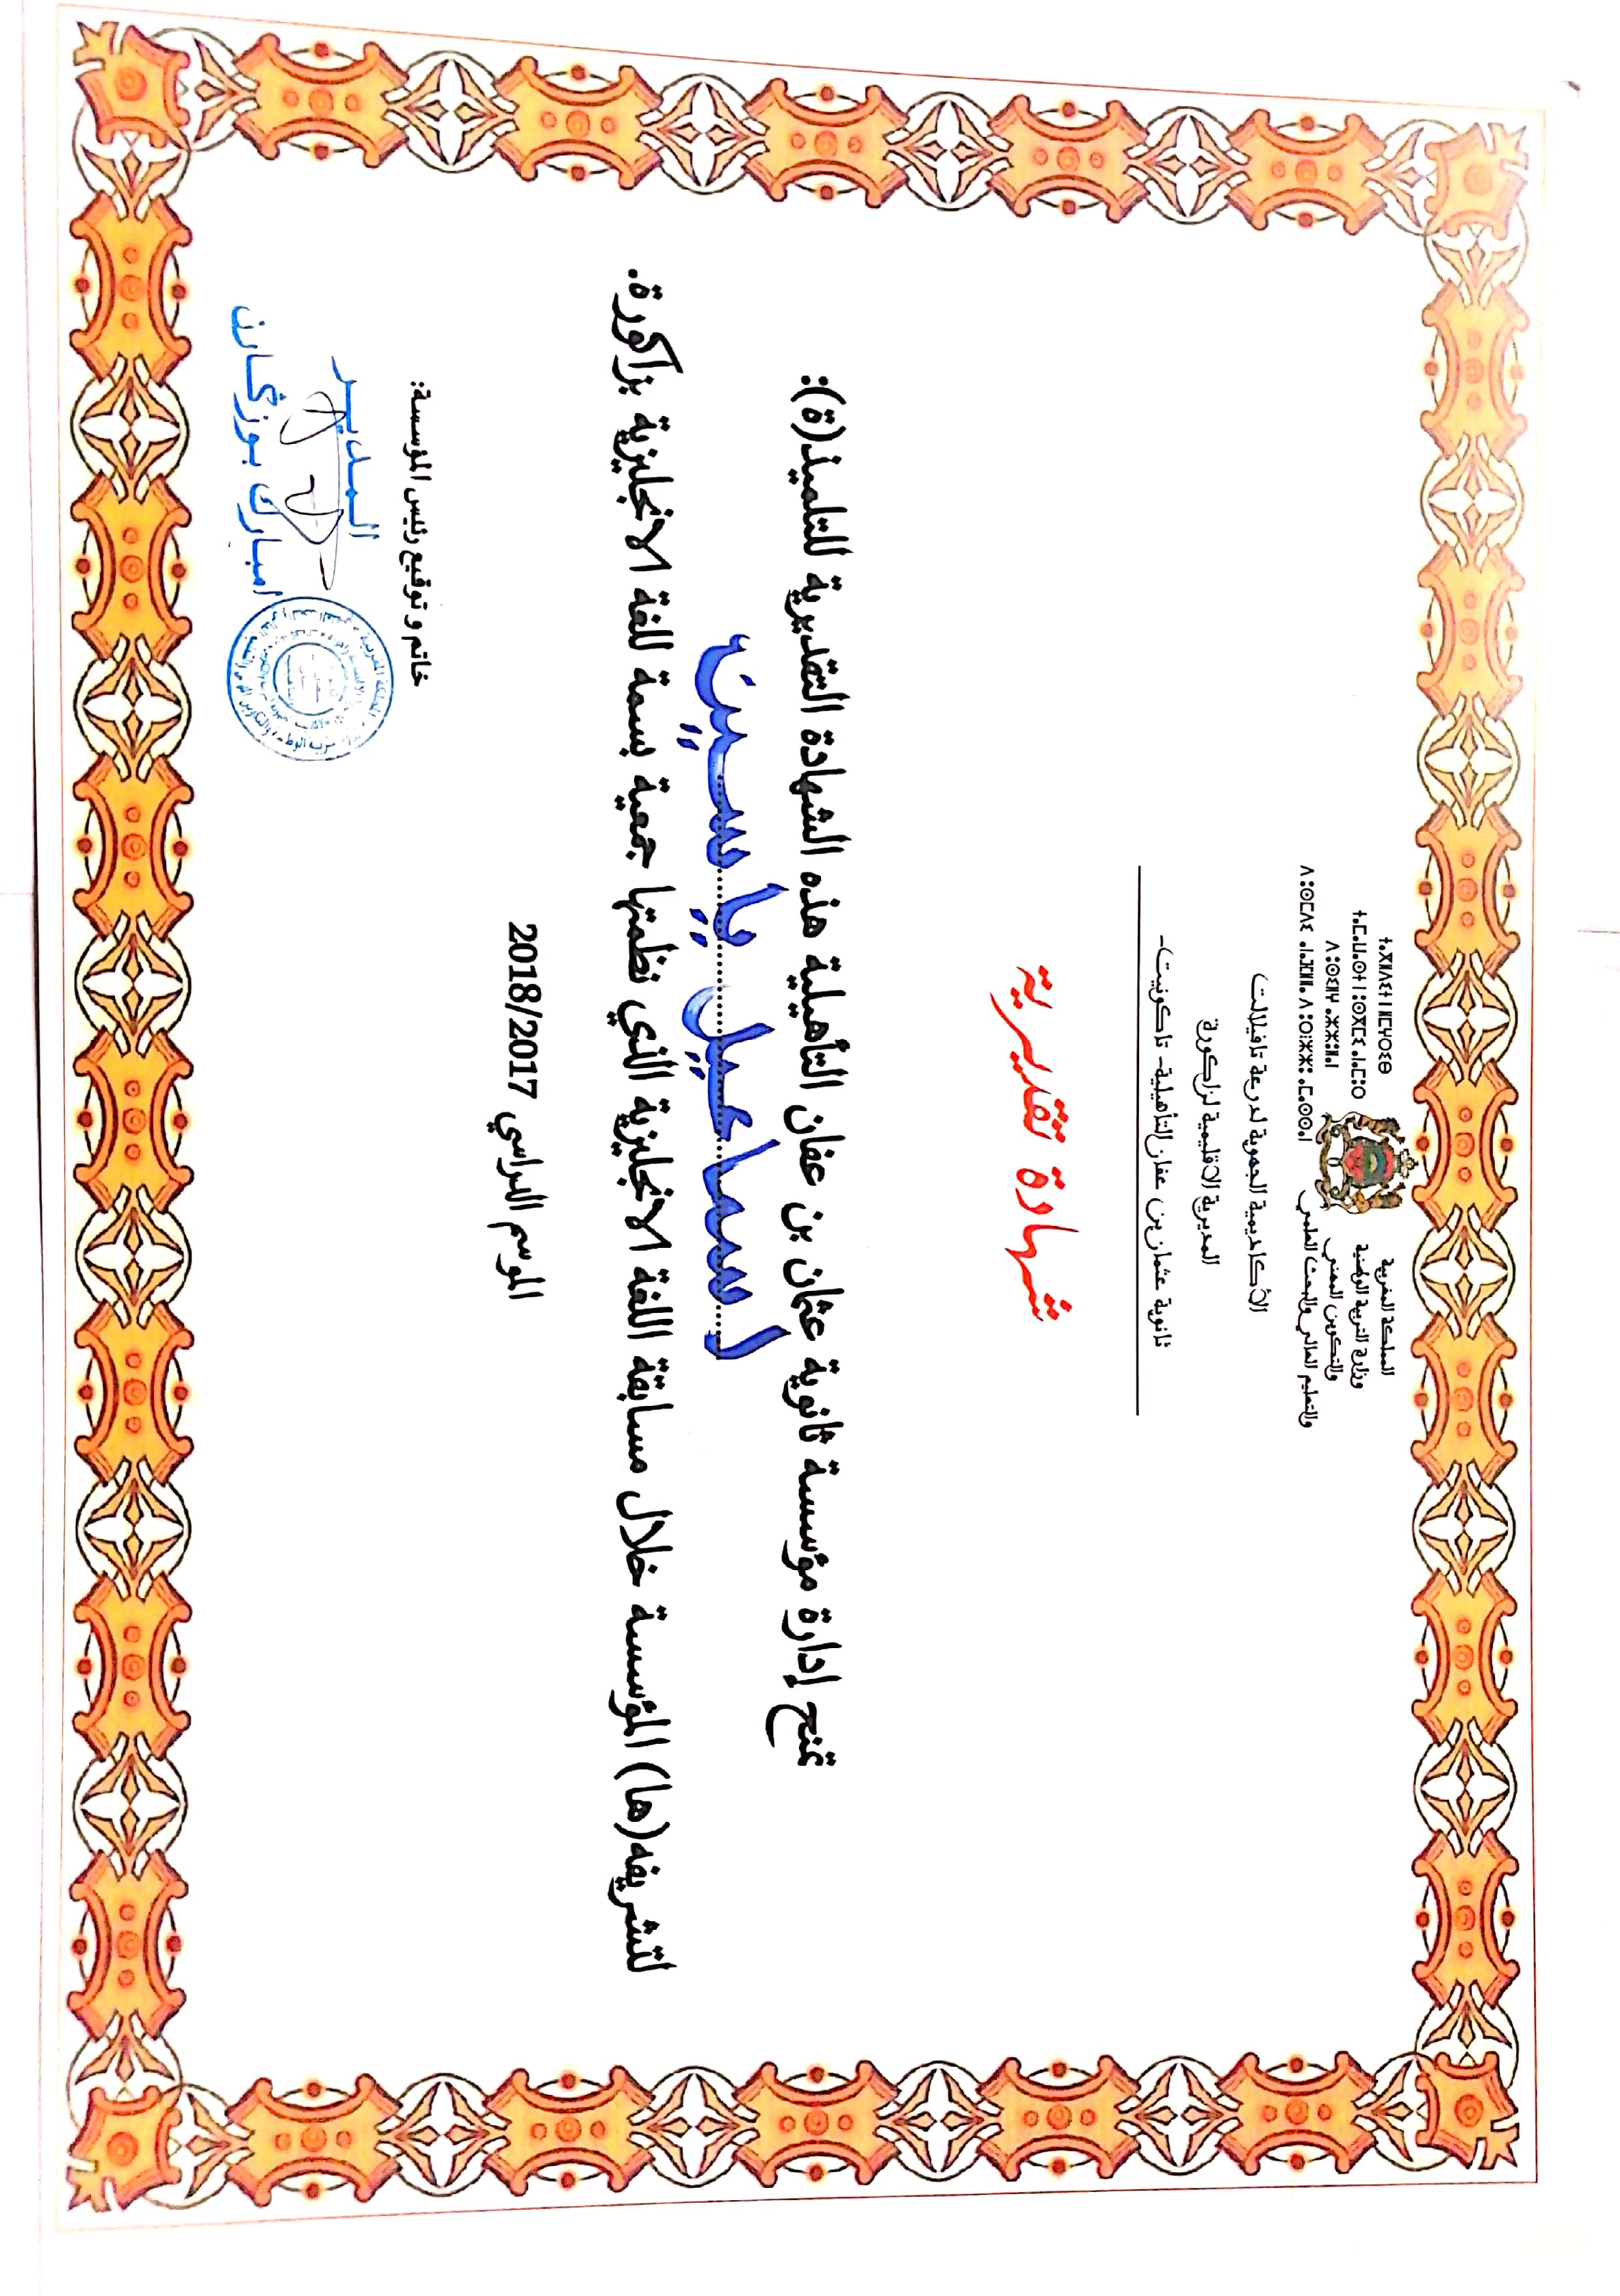 المملكة المغربية
وزارة التربية الوطنية
والتكوين المهني
والتعليم العالي والبحث العلمي
ⵜⴰⴳⵍⴷⵉⵜ ⵏ ⵍⵎⵖⵔⵉⴱ
ⵜⴰⵎⴰⵡⴰⵙⵜ ⵏ ⵓⵙⴳⵎⵉ ⴰⵏⴰⵎⵓⵔ
ⴷ ⵓⵙⵉⵍⵖ ⴰⵣⵣⵓⵍⴰⵏ
ⴷ ⵓⵙⵎⴷⵉ ⴰⵏⴰⴼⵍⵍⴰ ⴷ ⵓⵔⵣⵣⵓ ⴰⵎⴰⵙⵙⴰⵏ
الأكاديمية الجهوية لدرعة تافيلالت
المديرية الاقليمية لزاكورة
ثانوية عثمان بن عفان التأهيلية- تاكونيت-
شهادة تقديرية
تمنح إدارة مؤسسة ثانوية عثمان بن عفان التأهيلية هذه الشهادة التقديرية للتلميذ(ة):
اسماعيل ياسين
لتشريفه(ها) المؤسسة خلال مسابقة اللغة الانجليزية الذي نظمتها جمعية بسمة للغة الانجليزية بزاكورة.
الموسم الدراسي 2018/2017
خاتم و توقيع رئيس المؤسسة:
المديـر
امبارك بوزڭارن
المملكة المغربية